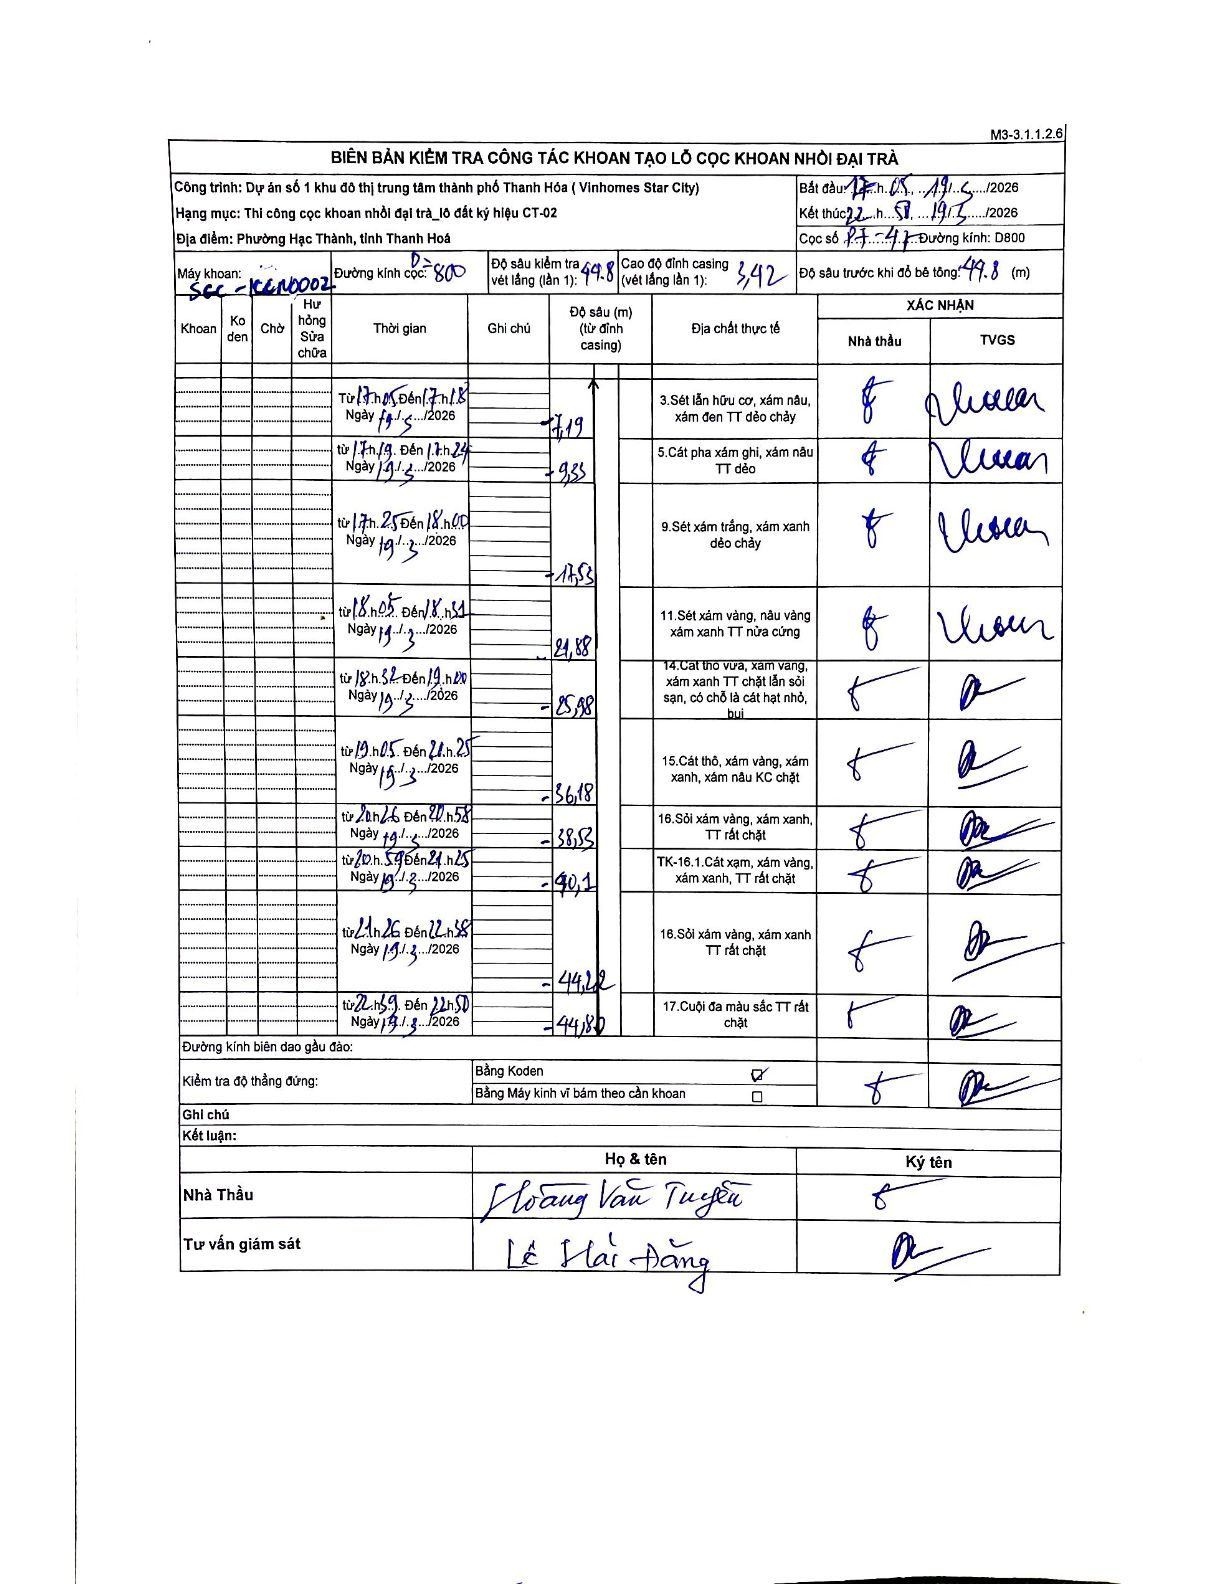 M3-3.1.1.2.6
BIÊN BẢN KIỂM TRA CÔNG TÁC KHOAN TẠO LỖ CỌC KHOAN NHỒI ĐẠI TRÀ
Công trình: Dự án số 1 khu đô thị trung tâm thành phố Thanh Hóa ( Vinhomes Star City)
Bắt đầu: 17 h. 05, 19/3/2026
Hạng mục: Thi công cọc khoan nhồi đại trà_lô đất ký hiệu CT-02
Kết thúc 22 h 19/3/2026
Địa điểm: Phường Hạc Thành, tỉnh Thanh Hoá
Cọc số Đường kính: D800
Máy khoan:
Đường kính cọc: D= 800
Độ sâu kiểm tra vét lắng (lần 1): 49.8
Cao độ đỉnh casing (vét lắng lần 1): 3,42
Độ sâu trước khi đổ bê tông: 49.8 (m)
Khoan
Ko den
Chờ
Hư hỏng Sửa chữa
Thời gian
Ghi chú
Độ sâu (m) (từ đỉnh casing)
Địa chất thực tế
XÁC NHẬN
Nhà thầu
TVGS
Từ 17.h 05 Đến 17.h 18
Ngày 19./.3.../2026
-7,19
3.Sét lẫn hữu cơ, xám nâu,
xám đen TT dẻo chảy
từ 17.h.19. Đến 17.h.24
Ngày 19./.3.../2026
-9,33
5.Cát pha xám ghi, xám nâu
TT dẻo
từ 17.h.25 Đến 18.h.00
Ngày 19./.3.../2026
-17,53
9.Sét xám trắng, xám xanh
dẻo chảy
từ 18.h.05. Đến 18.h 31
Ngày 19../.3.../2026
21,88
11.Sét xám vàng, nâu vàng
xám xanh TT nửa cứng
từ 18.h.32 Đến 19.h 00
Ngày 19../.3.../2026
-25,98
14.Cát thô vừa, xám vàng,
xám xanh TT chặt lẫn sỏi
sạn, có chỗ là cát hạt nhỏ,
bụi
từ 19.h 05. Đến h.25
Ngày 19../.3.../2026
-36,18
15.Cát thô, xám vàng, xám
xanh, xám nâu KC chặt
từ 20.h 26 Đến 20.h 58
Ngày 19./.3.../2026
-38,53
16.Sỏi xám vàng, xám xanh,
TT rất chặt
từ 20.h.59 Đến 21.h 25
Ngày 19./.3.../2026
-40,1
TK-16.1.Cát xạm, xám vàng,
xám xanh, TT rất chặt
từ 21h 26 Đến 22.h 38
Ngày 19./.3.../2026
-44,22
16.Sỏi xám vàng, xám xanh
TT rất chặt
từ 22.h 39. Đến 22h 50
Ngày 19./.3.../2026
-44,80
17.Cuội đa màu sắc TT rất
chặt
Đường kính biên dao gầu đào:
Kiểm tra độ thẳng đứng:
Bằng Koden ☑
Bằng Máy kinh vĩ bám theo cần khoan ☐
Ghi chú
Kết luận:
Họ & tên
Ký tên
Nhà Thầu
Hoàng Văn Tuyên
Tư vấn giám sát
Lê Hải Đăng